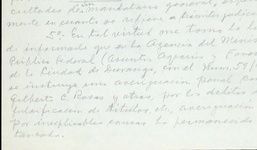 cultades de mandatario general, en
mente en cuanto se refiere a asuntos
5º. En tal virtud me tomo la
de informarle que en la Agencia del Minis
Público Federal (Asuntos Agrarios y
de la Ciudad de Durango, con el Núm.
se instruye una averiguación penal
Gilberto C. Rosas y otros, por los delitos
falsificación de títulos, etc., averiguación
por inexplicables causas ha permanecido